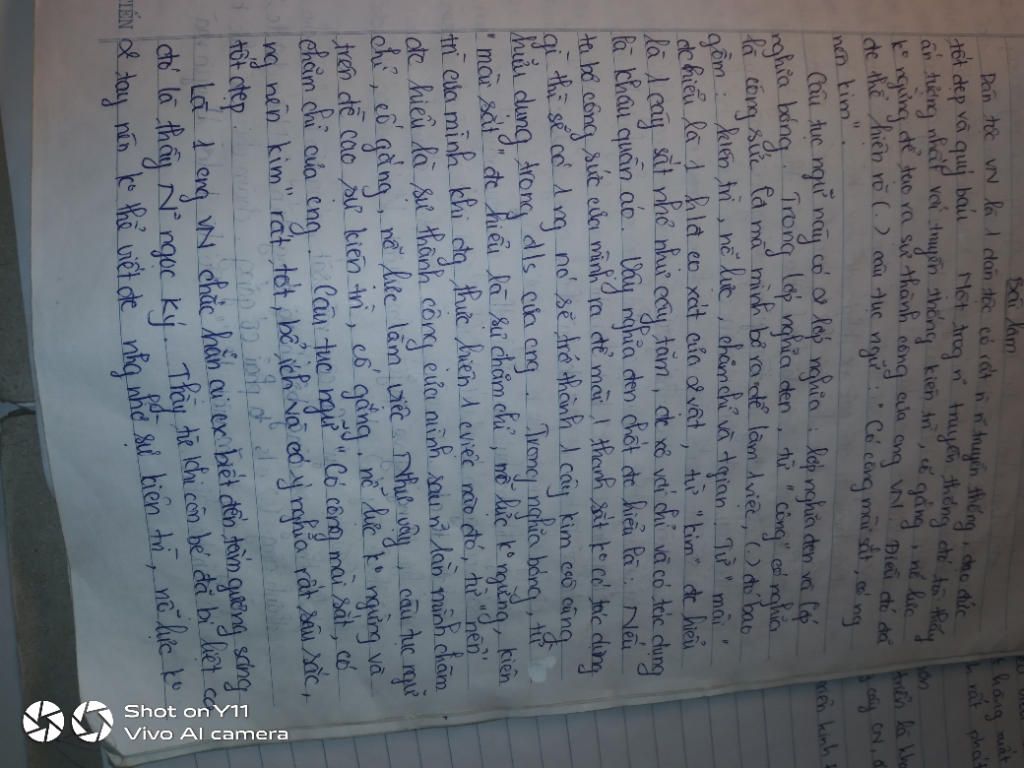 Bài làm
Dân tộc VN là 1 dân tộc có rất n n truyền thống, đạo đức
tốt đẹp và quý báu. Một trog n truyền thống đó, tôi thấy
ấn tượng nhất với truyền thống kiên trì, cố gắng, nỗ lực
kº ngừng để tạo ra sự thành công của cng VN. Điều đó đã
đc thể hiện rõ (.) câu tục ngữ: "Có công mài sắt, có ng
nên kim".
Câu tục ngữ này có 2 lớp nghĩa: lớp nghĩa đen và lớp
nghĩa bóng. Trong lớp nghĩa đen, từ "công" có nghĩa
là công sức lđ mà mình bỏ ra để làm 1 việc, (.) đó bao
gồm: kiên trì, nỗ lực, chăm chỉ và tgian. Từ "mài"
đc hiểu là 1 h là cọ xát của 2 vật, từ "kim" đc hiểu
là 1 cây sắt nhỏ như cây tăm, đc xỏ với chỉ và có tác dụng
là khâu quần áo. Vậy nghĩa đen chốt đc hiểu là: Nếu
ta bỏ công sức của mình ra để mài 1 thanh sắt kº có tác dụng
gì thì sẽ có 1 ng nó sẽ trở thành 1 cây kim vô cùng
hữu dụng trong đ/s của cng. Trong nghĩa bóng, từ
"mài sắt" đc hiểu là sự chăm chỉ, nỗ lực kº ngừng, kiên
trì của mình khi đg thực hiện 1 cviệc nào đó, từ "nên"
đc hiểu là sự thành công của mình sau n lần mình chăm
chỉ, cố gắng, nỗ lực làm việc. Như vậy, câu tục ngữ
trên đề cao sự kiên trì, cố gắng, nỗ lực kº ngừng và
chăm chỉ của cng. Câu tục ngữ "Có công mài sắt, có
ng nên kim" rất tốt, bổ ích và có ý nghĩa rất sâu sắc,
tốt đẹp.
Là 1 ng VN chắc hẳn ai cx biết đến tấm gương sáng
đó là thầy N ngọc Ký. Thầy từ khi còn bé đã bị liệt cả
2 tay nên kº thể viết đc nhg nhờ sự kiên trì, nỗ lực kº